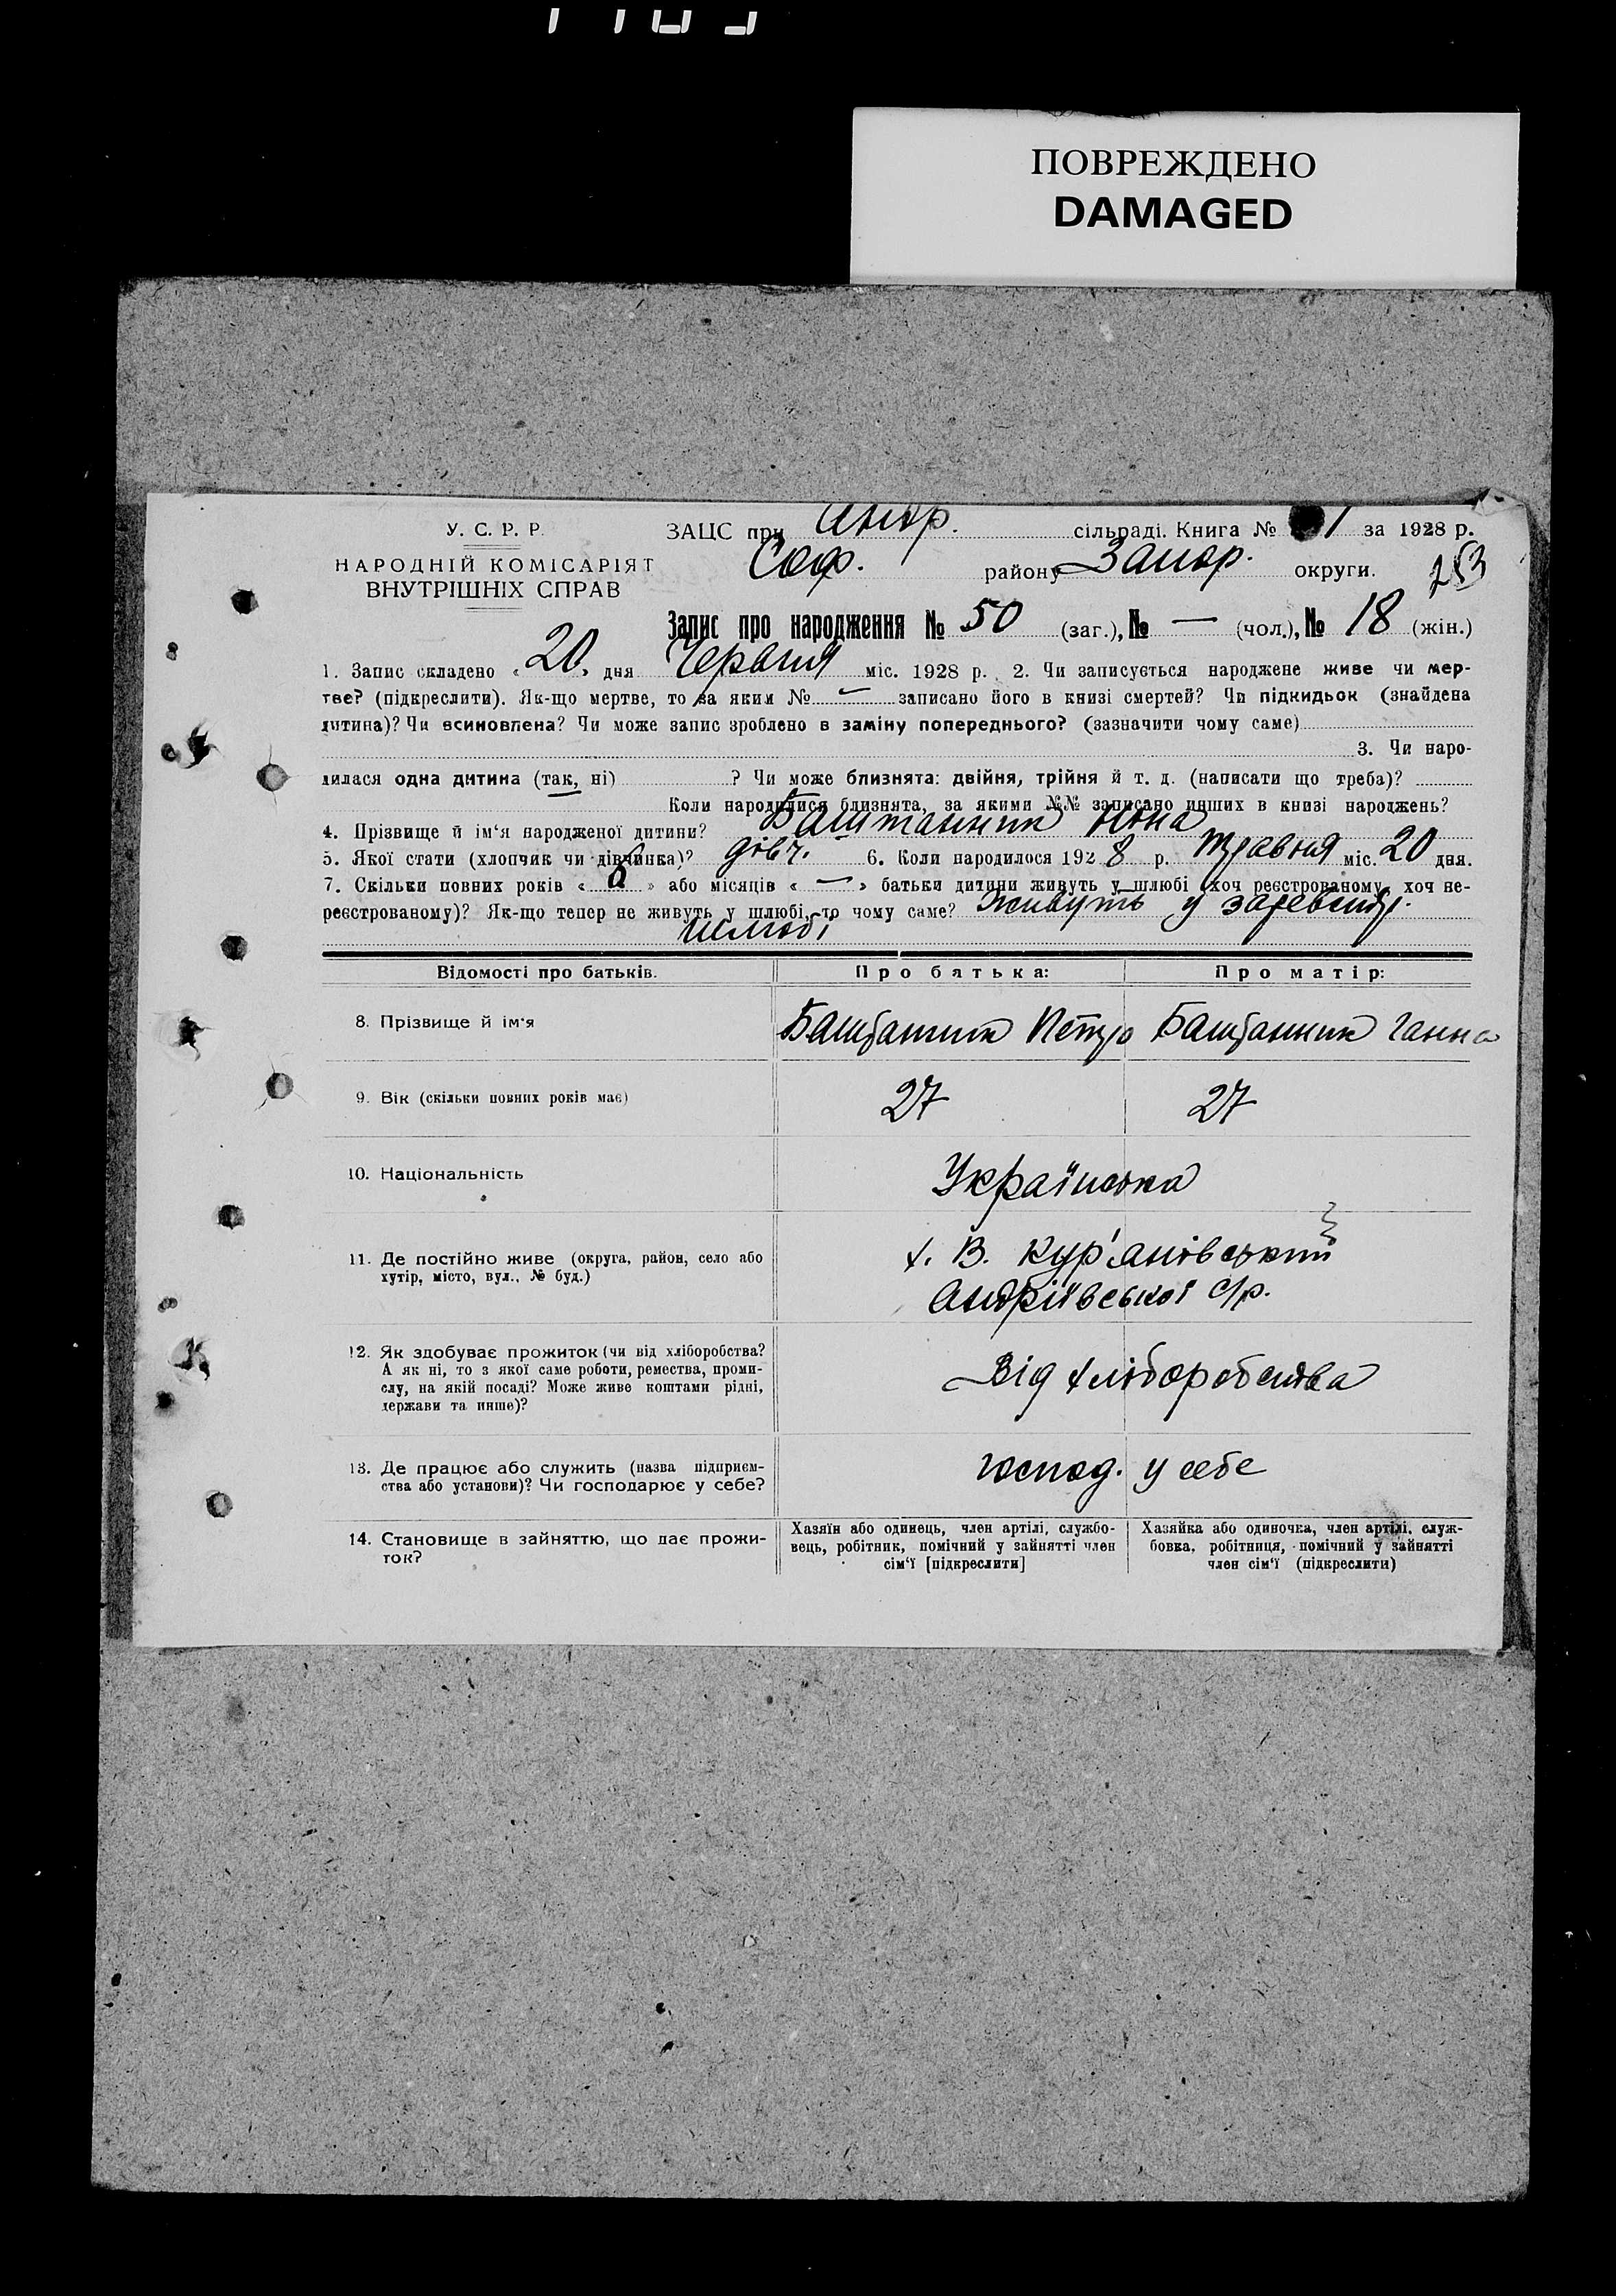 ПОВРЕЖДЕНО
DAMAGED
У. С. Р. Р.
НАРОДНІЙ КОМІСАРІЯТ
ВНУТРІШНІХ СПРАВ
ЗАЦС при Андр. сільраді. Книга № 1 за 1928 р.
Соф. району Запор. округи. 253
Запис про народження № 50 (заг.), № — (чол.), № 18 (жін.)
1. Запис складено « 20 » дня Червня міс. 1928 р. 2. Чи записується народжене живе чи мер-
тве? (підкреслити). Як-що мертве, то за яким № — записано його в книзі смертей? Чи підкидьок (знайдена
дитина)? Чи всиновлена? Чи може запис зроблено в заміну попереднього? (зазначити чому саме)
3. Чи наро-
дилася одна дитина (так, ні) ? Чи може близнята: двійня, трійня й т. д. (написати що треба)?
Коли народилися близнята, за якими №№ записано инших в книзі народжень?
4. Прізвище й ім‘я народженої дитини? Баштанник Нона
5. Якої стати (хлопчик чи дівчинка)? дівч. 6. Коли народилося 1928 р. травня міс. 20 дня.
7. Скільки повних років « 8 » або місяців « — » батьки дитини живуть у шлюбі (хоч реєстрованому, хоч не-
реєстрованому)? Як-що тепер не живуть у шлюбі, то чому саме? живуть у
шлюбі
Відомості про батьків. Про батька: Про матір:
8. Прізвище й ім‘я Баштанник Петро Баштанник Ганна
9. Вік (скільки повних років має) 27 27
10. Національність Українська
11. Де постійно живе (округа, район, село або
хутір, місто, вул., № буд.)
х. В. Кур'янівський
Андріївської с/р.
12. Як здобуває прожиток (чи від хліборобства?
А як ні, то з якої саме роботи, ремества, проми-
слу, на якій посаді? Може живе коштами рідні,
держави та инше)?
Від хліборобства
13. Де працює або служить (назва підприєм-
ства або установи)? Чи господарює у себе?
господ. у себе
14. Становище в зайняттю, що дає прожи-
ток?
Хазяїн або одинець, член артілі, службо-
вець, робітник, помічний у зайнятті член
сім‘ї [підкреслити]
Хазяйка або одиночка, член артілі, служ-
бовка, робітниця, помічний у зайнятті
член сім‘ї (підкреслити)